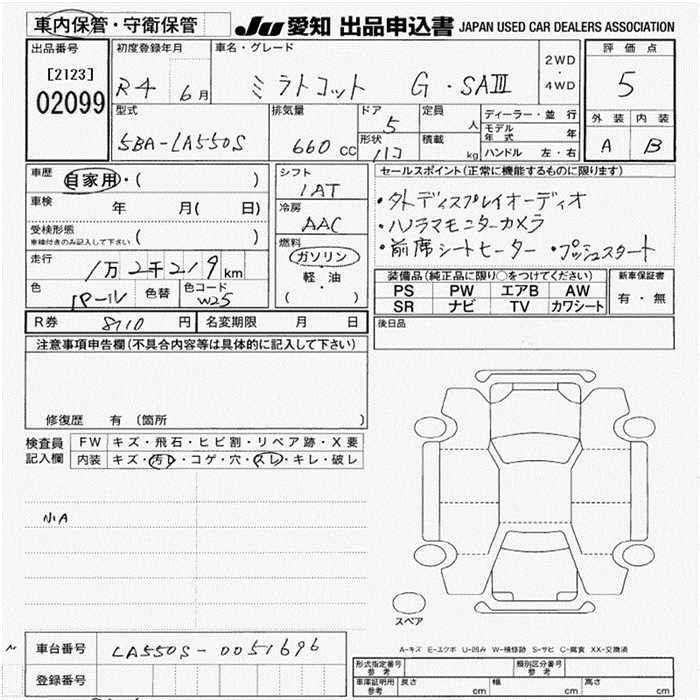 車内保管・守衛保管 JU 愛知 出品申込書 JAPAN USED CAR DEALERS ASSOCIATION
出品番号 初度登録年月 車名・グレード 2WD・4WD 評価点
[2123]
02099
R4 6月 ミラトコット G・SAⅢ 5
型式 排気量 ドア 定員 ディーラー・並行 外装 内装
5BA-LA550S 660cc 5 人 モデル年式 年 A B
形状 積載 ハンドル 左・右
ハコ kg
車歴 自家用・( ) シフト セールスポイント(正常に機能するものに限ります)
IAT
車検 年 月( 日) 冷房 ・外ディスプレイオーディオ
AAC ・パノラマモニターカメラ
受検形態 ( ) 燃料 ・前席シートヒーター ・プッシュスタート
車検付きのみ記入して下さい ガソリン
走行 1万2千219km 軽・油
( )
色 色替 色コード
パール W25
装備品(純正品に限り○をつけてください) 新車保証書
PS PW エアB AW 有・無
SR ナビ TV カワシート
R券 8710円 名変期限 月 日 後日品
注意事項申告欄(不具合内容等は具体的に記入して下さい)
修復歴 有 (箇所 )
検査員記入欄 FW キズ・飛石・ヒビ割・リペア跡・X要
内装 キズ・汚レ・コゲ・穴・スレ・キレ・破レ
小A
スペア
A-キズ E-エクボ U-凹み W-補修跡 S-サビ C-腐食 XX-交換済
車台番号 LA550S-0051696
登録番号
形式指定番号 参考 類別区分番号 参考
車庫証明用 参考 長さ cm 幅 cm 高さ cm